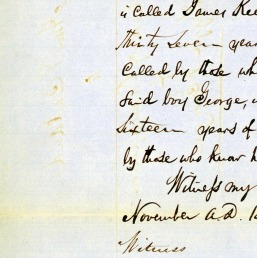 is called James Kee
thirty seven yea
called by those wh
said boy George,
sixteen years of
by those who know h
Witness my
November A.D. 1
Witness